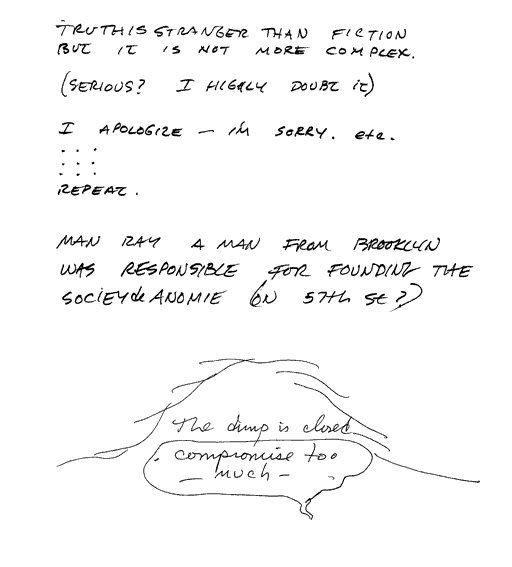 TRUTH IS STRANGER THAN FICTION
BUT IT IS NOT MORE COMPLEX.
(SERIOUS? I HIGHLY DOUBT IT)
I APOLOGIZE — IM SORRY. etc.
REPEAT.
MAN RAY A MAN FROM BROOKLYN
WAS RESPONSIBLE FOR FOUNDING THE
SOCIEY de ANOMIE (ON 57th St?)
The dump is closed
compromise too
— much —